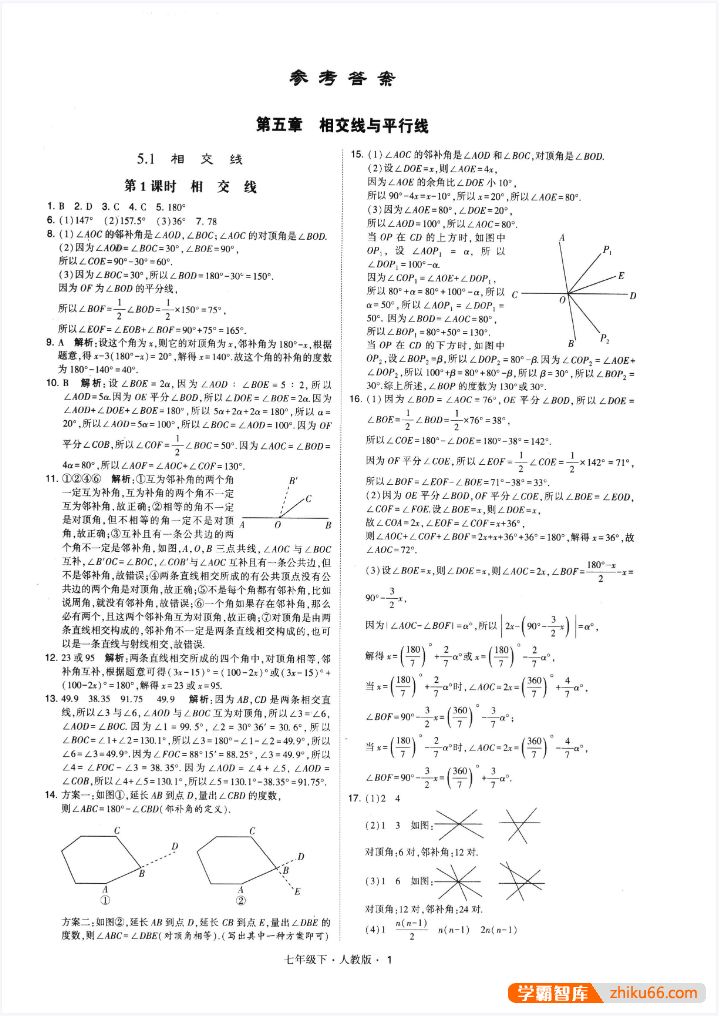 参考答案
第五章 相交线与平行线
5.1 相 交 线
第1课时 相 交 线
1. B 2. D 3. C 4. C 5. 180°
6. (1)147° (2)157.5° (3)36° 7. 78
8. (1)∠AOC的邻补角是∠AOD,∠BOC;∠AOC的对顶角是∠BOD.
(2)因为∠AOD=∠BOC=30°,∠BOE=90°,
所以∠COE=90°-30°=60°.
(3)因为∠BOC=30°,所以∠BOD=180°-30°=150°.
因为OF为∠BOD的平分线,
所以∠BOF=1/2∠BOD=1/2×150°=75°,
所以∠EOF=∠EOB+∠BOF=90°+75°=165°.
9. A 解析:设这个角为x,则它的对顶角为x,邻补角为180°-x,根据
题意,得x-3(180°-x)=20°,解得x=140°.故这个角的补角的度数
为180°-140°=40°.
10. B 解析:设∠BOE=2α,因为∠AOD:∠BOE=5:2,所以
∠AOD=5α.因为OE平分∠BOD,所以∠DOE=∠BOE=2α.因为
∠AOD+∠DOE+∠BOE=180°,所以5α+2α+2α=180°,所以α=
20°,所以∠AOD=5α=100°,所以∠BOC=∠AOD=100°.因为OF
平分∠COB,所以∠COF=1/2∠BOC=50°.因为∠AOC=∠BOD=
4α=80°,所以∠AOF=∠AOC+∠COF=130°.
11. ①②④⑥ 解析:①互为邻补角的两个角
一定互为补角,互为补角的两个角不一定
互为邻补角,故正确;②相等的角不一定
是对顶角,但不相等的角一定不是对顶
角,故正确;③互补且有一条公共边的两
个角不一定是邻补角,如图,A,O,B三点共线,∠AOC与∠BOC
互补,∠B'OC=∠BOC,∠COB'与∠AOC互补且有一条公共边,但
不是邻补角,故错误;④两条直线相交所成的有公共顶点没有公
共边的两个角是对顶角,故正确;⑤不是每个角都有邻补角,比如
说周角,就没有邻补角,故错误;⑥一个角如果存在邻补角,那么
必有两个,且这两个邻补角互为对顶角,故正确;⑦对顶角是由两
条直线相交构成的,邻补角不一定是两条直线相交构成的,也可
以是一条直线与射线相交,故错误.
B'
C
A O B
12. 23或95 解析:两条直线相交所成的四个角中,对顶角相等,邻
补角互补,根据题意可得(3x-15)°=(100-2x)°或(3x-15)°+
(100-2x)°=180°,解得x=23或x=95.
13. 49.9 38.35 91.75 49.9 解析:因为AB,CD是两条相交直
线,所以∠3与∠6,∠AOD与∠BOC互为对顶角,所以∠3=∠6,
∠AOD=∠BOC.因为∠1=99.5°,∠2=30°36'=30.6°,所以
∠BOC=∠1+∠2=130.1°,所以∠3=180°-∠1-∠2=49.9°,所以
∠6=∠3=49.9°.因为∠FOC=88°15'=88.25°,∠3=49.9°,所以
∠4=∠FOC-∠3=38.35°.因为∠AOD=∠4+∠5,∠AOD=
∠COB,所以∠4+∠5=130.1°,所以∠5=130.1°-38.35°=91.75°.
14. 方案一:如图①,延长AB到点D,量出∠CBD的度数,
则∠ABC=180°-∠CBD(邻补角的定义).
C D B A
①
C D B A E
②
方案二:如图②,延长AB到点D,延长CB到点E,量出∠DBE的
度数,则∠ABC=∠DBE(对顶角相等).(写出其中一种方案即可)
15. (1)∠AOC的邻补角是∠AOD和∠BOC,对顶角是∠BOD.
(2)设∠DOE=x,则∠AOE=4x,
因为∠AOE的余角比∠DOE小10°,
所以90°-4x=x-10°,所以x=20°,所以∠AOE=80°.
(3)因为∠AOE=80°,∠DOE=20°,
所以∠AOD=100°,所以∠AOC=80°.
当OP在CD的上方时,如图中
OP₁,设∠AOP₁=α,所以
∠DOP₁=100°-α.
因为∠COP₁=∠AOE+∠DOP₁,
所以80°+α=80°+100°-α,所以
α=50°,所以∠AOP₁=∠DOP₁=
50°.因为∠BOD=∠AOC=80°,
所以∠BOP₁=80°+50°=130°.
当OP在CD的下方时,如图中
A
P₁
E
C O D
B P₂
OP₂,设∠BOP₂=β,所以∠DOP₂=80°-β.因为∠COP₂=∠AOE+
∠DOP₂,所以100°+β=80°+80°-β,所以β=30°,所以∠BOP₂=
30°.综上所述,∠BOP的度数为130°或30°.
16. (1)因为∠BOD=∠AOC=76°,OE平分∠BOD,所以∠DOE=
∠BOE=1/2∠BOD=1/2×76°=38°,
所以∠COE=180°-∠DOE=180°-38°=142°.
因为OF平分∠COE,所以∠EOF=1/2∠COE=1/2×142°=71°,
所以∠BOF=∠EOF-∠BOE=71°-38°=33°.
(2)因为OE平分∠BOD,OF平分∠COE,所以∠BOE=∠EOD,
∠COF=∠FOE.设∠BOE=x,则∠DOE=x,
故∠COA=2x,∠EOF=∠COF=x+36°,
则∠AOC+∠COF+∠BOF=2x+x+36°+36°=180°,解得x=36°,故
∠AOC=72°.
(3)设∠BOE=x,则∠DOE=x,则∠AOC=2x,∠BOF=(180°-x)/2-x=
90°-3/2x,
因为|∠AOC-∠BOF|=α°,所以|2x-(90°-3/2x)|=α°,
解得x=(180/7)°+2/7α°或x=(180/7)°-2/7α°,
当x=(180/7)°+2/7α°时,∠AOC=2x=(360/7)°+4/7α°,
∠BOF=90°-3/2x=(360/7)°-3/7α°;
当x=(180/7)°-2/7α°时,∠AOC=2x=(360/7)°-4/7α°,
∠BOF=90°-3/2x=(360/7)°+3/7α°.
17. (1)2 4
(2)1 3 如图:
对顶角:6对,邻补角:12对.
(3)1 6 如图:
对顶角:12对,邻补角:24对.
(4)1 n(n-1)/2 n(n-1) 2n(n-1)
七年级下·人教版·1
学霸智库 zhiku66.com